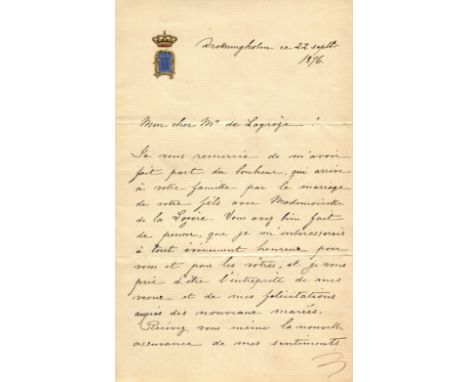 Drottningholm ce 22 septbr
1876.
Mon cher Mr de Lagrèze !
Je vous remercie de m'avoir
fait part du bonheur, qui arrive
à votre famille par le mariage
de votre fils avec Mademoiselle
de la Lozère. Vous avez bien fait
de penser, que je m'interesserais
à tout évènement heureux pour
vous et pour les vôtres, et je vous
prie d'être l'interprète de mes
voeux et de mes félicitations
auprès des nouveaux mariés.
Recevez vous même la nouvelle
assurance de mes sentiments